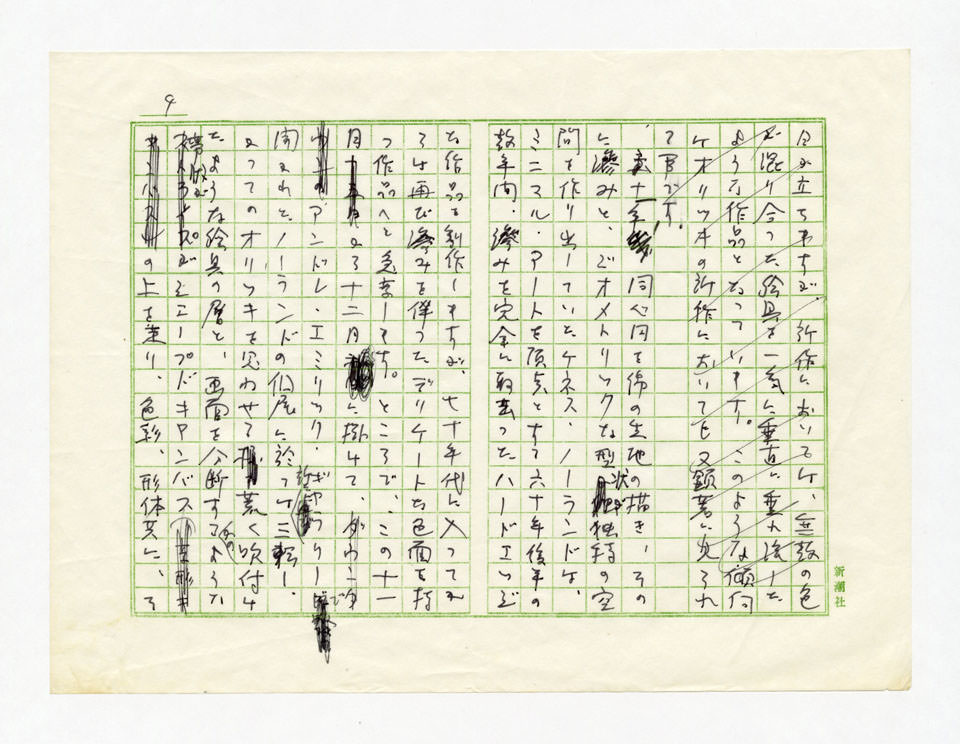 4
目が立ちますが、新作においては、無数の色
が混り合った絵具を一気に垂直に重力流した
ような作品となっています。このような傾向
はオリツキの新作においても又顕著に見られ
て
六十年 同心円を綿の生地の描き、その
に滲みと、ジオメトリックな型状が独特の空
間を作り出していたケネス・ノーランドは、
ミニマル・アートを頂点とする六十年後半の
数年間、滲みを完全に取去ったハードエッジ
な作品を制作しますが、七十年代に入ってか
らは再び滲みを伴ったデリケートな色面を持
つ作品へと急変します。ところで、この十一
月から十二月に掛けて、
アンドレ・エミリック・ギャラリーで
開かれた、ノーランドの個展に於ては三転し、
かつてのオリツキを思わせる荒く吹付け
たような絵具の層と、画面を分断するような
がシェープドキャンバス
の上を走り、色彩、形体共に、そ
新潮社